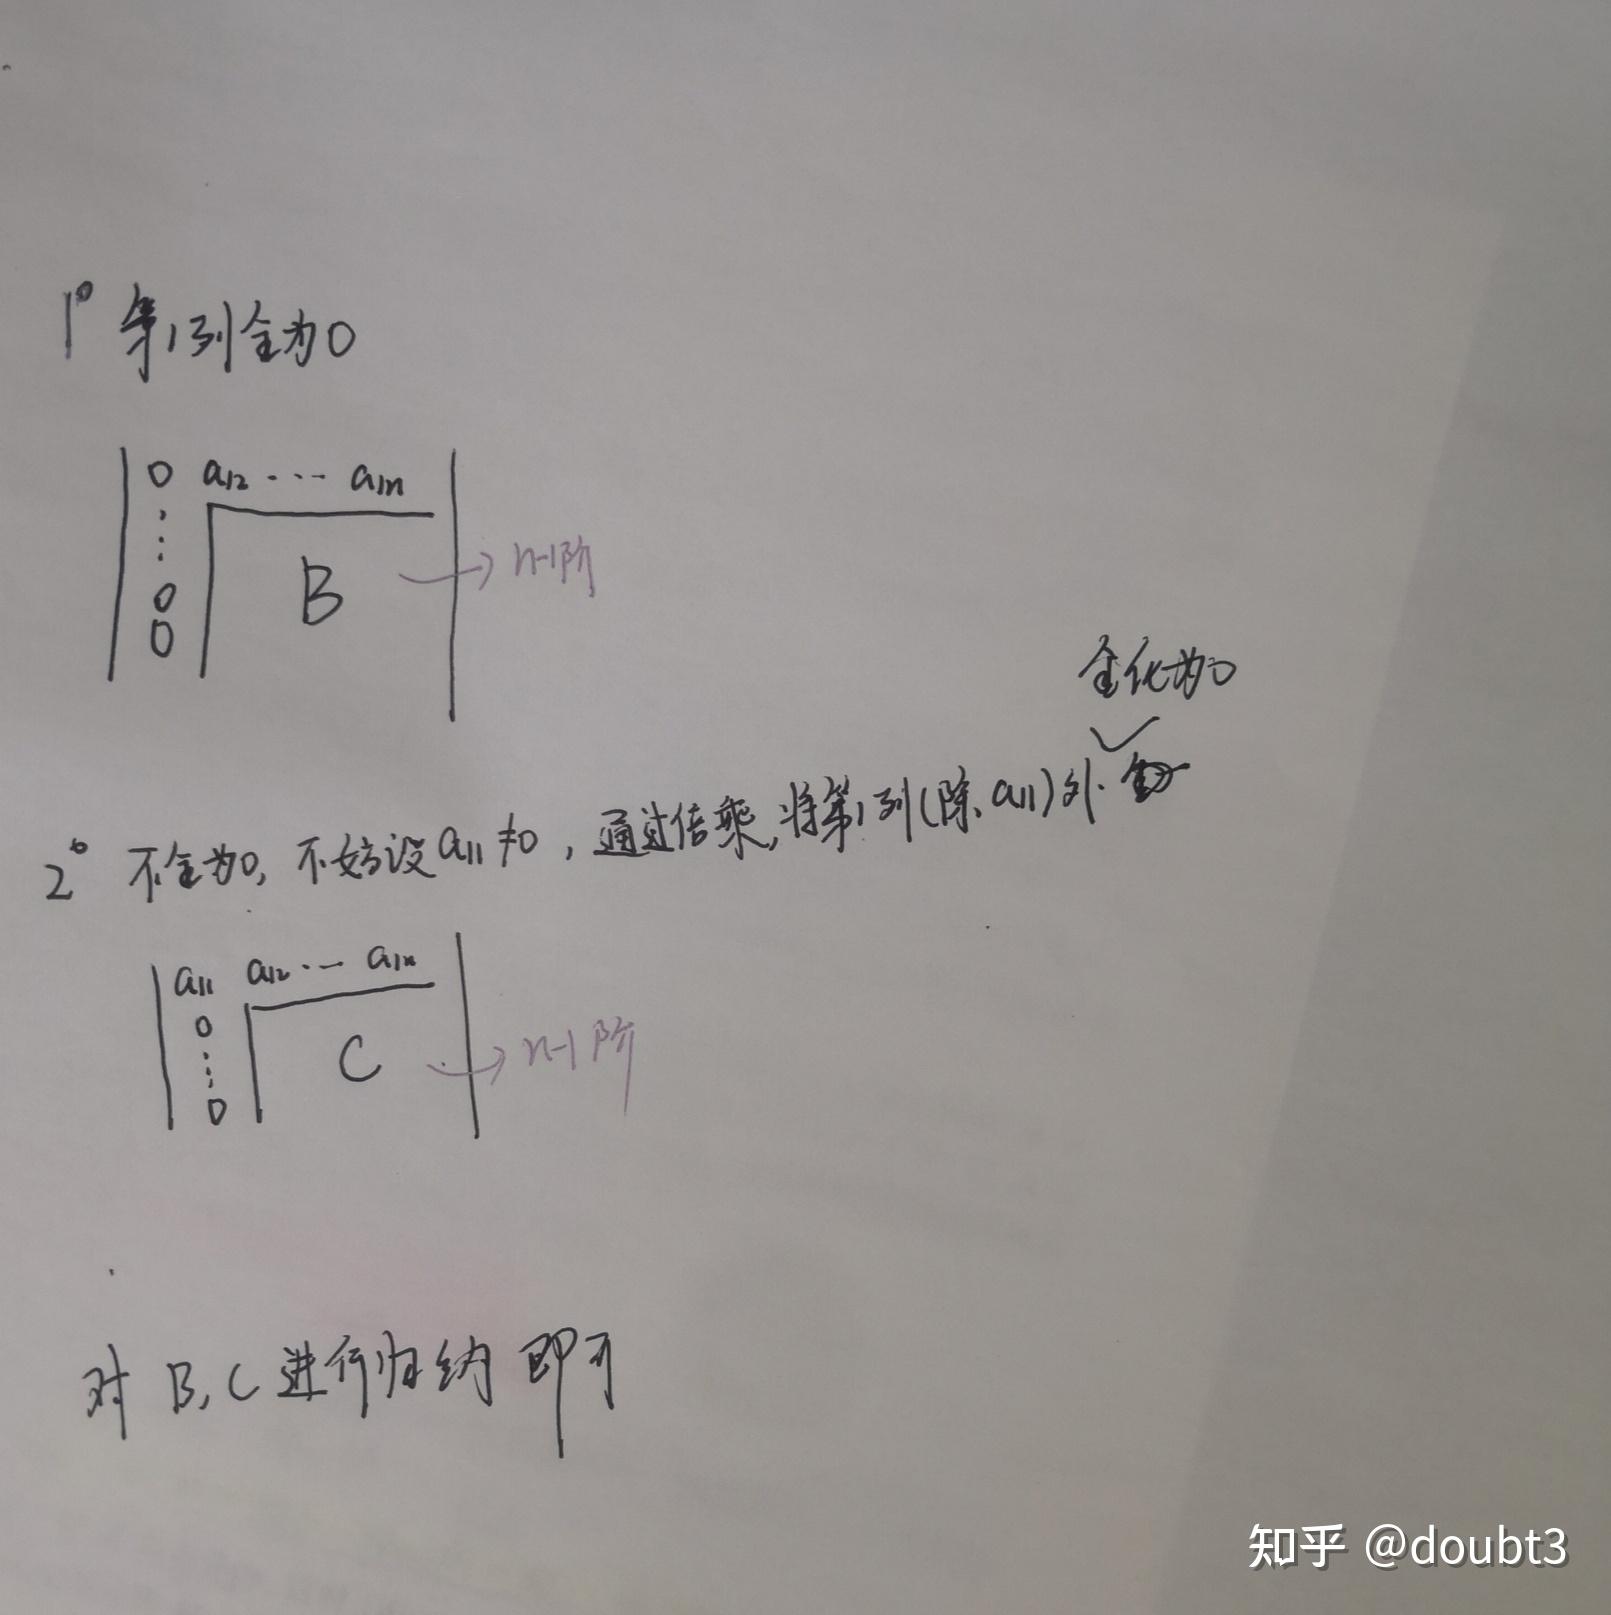 1° 第1列全为0
0 a12 ··· a1n
⋮
0
0
B → n-1阶
全化为0
2° 不全为0, 不妨设a11≠0, 通过倍乘, 将第1列(除a11)外
a11 a12 ··· a1n
0
⋮
0
C → n-1阶
对 B, C 进行归纳 即可
知乎 @doubt3